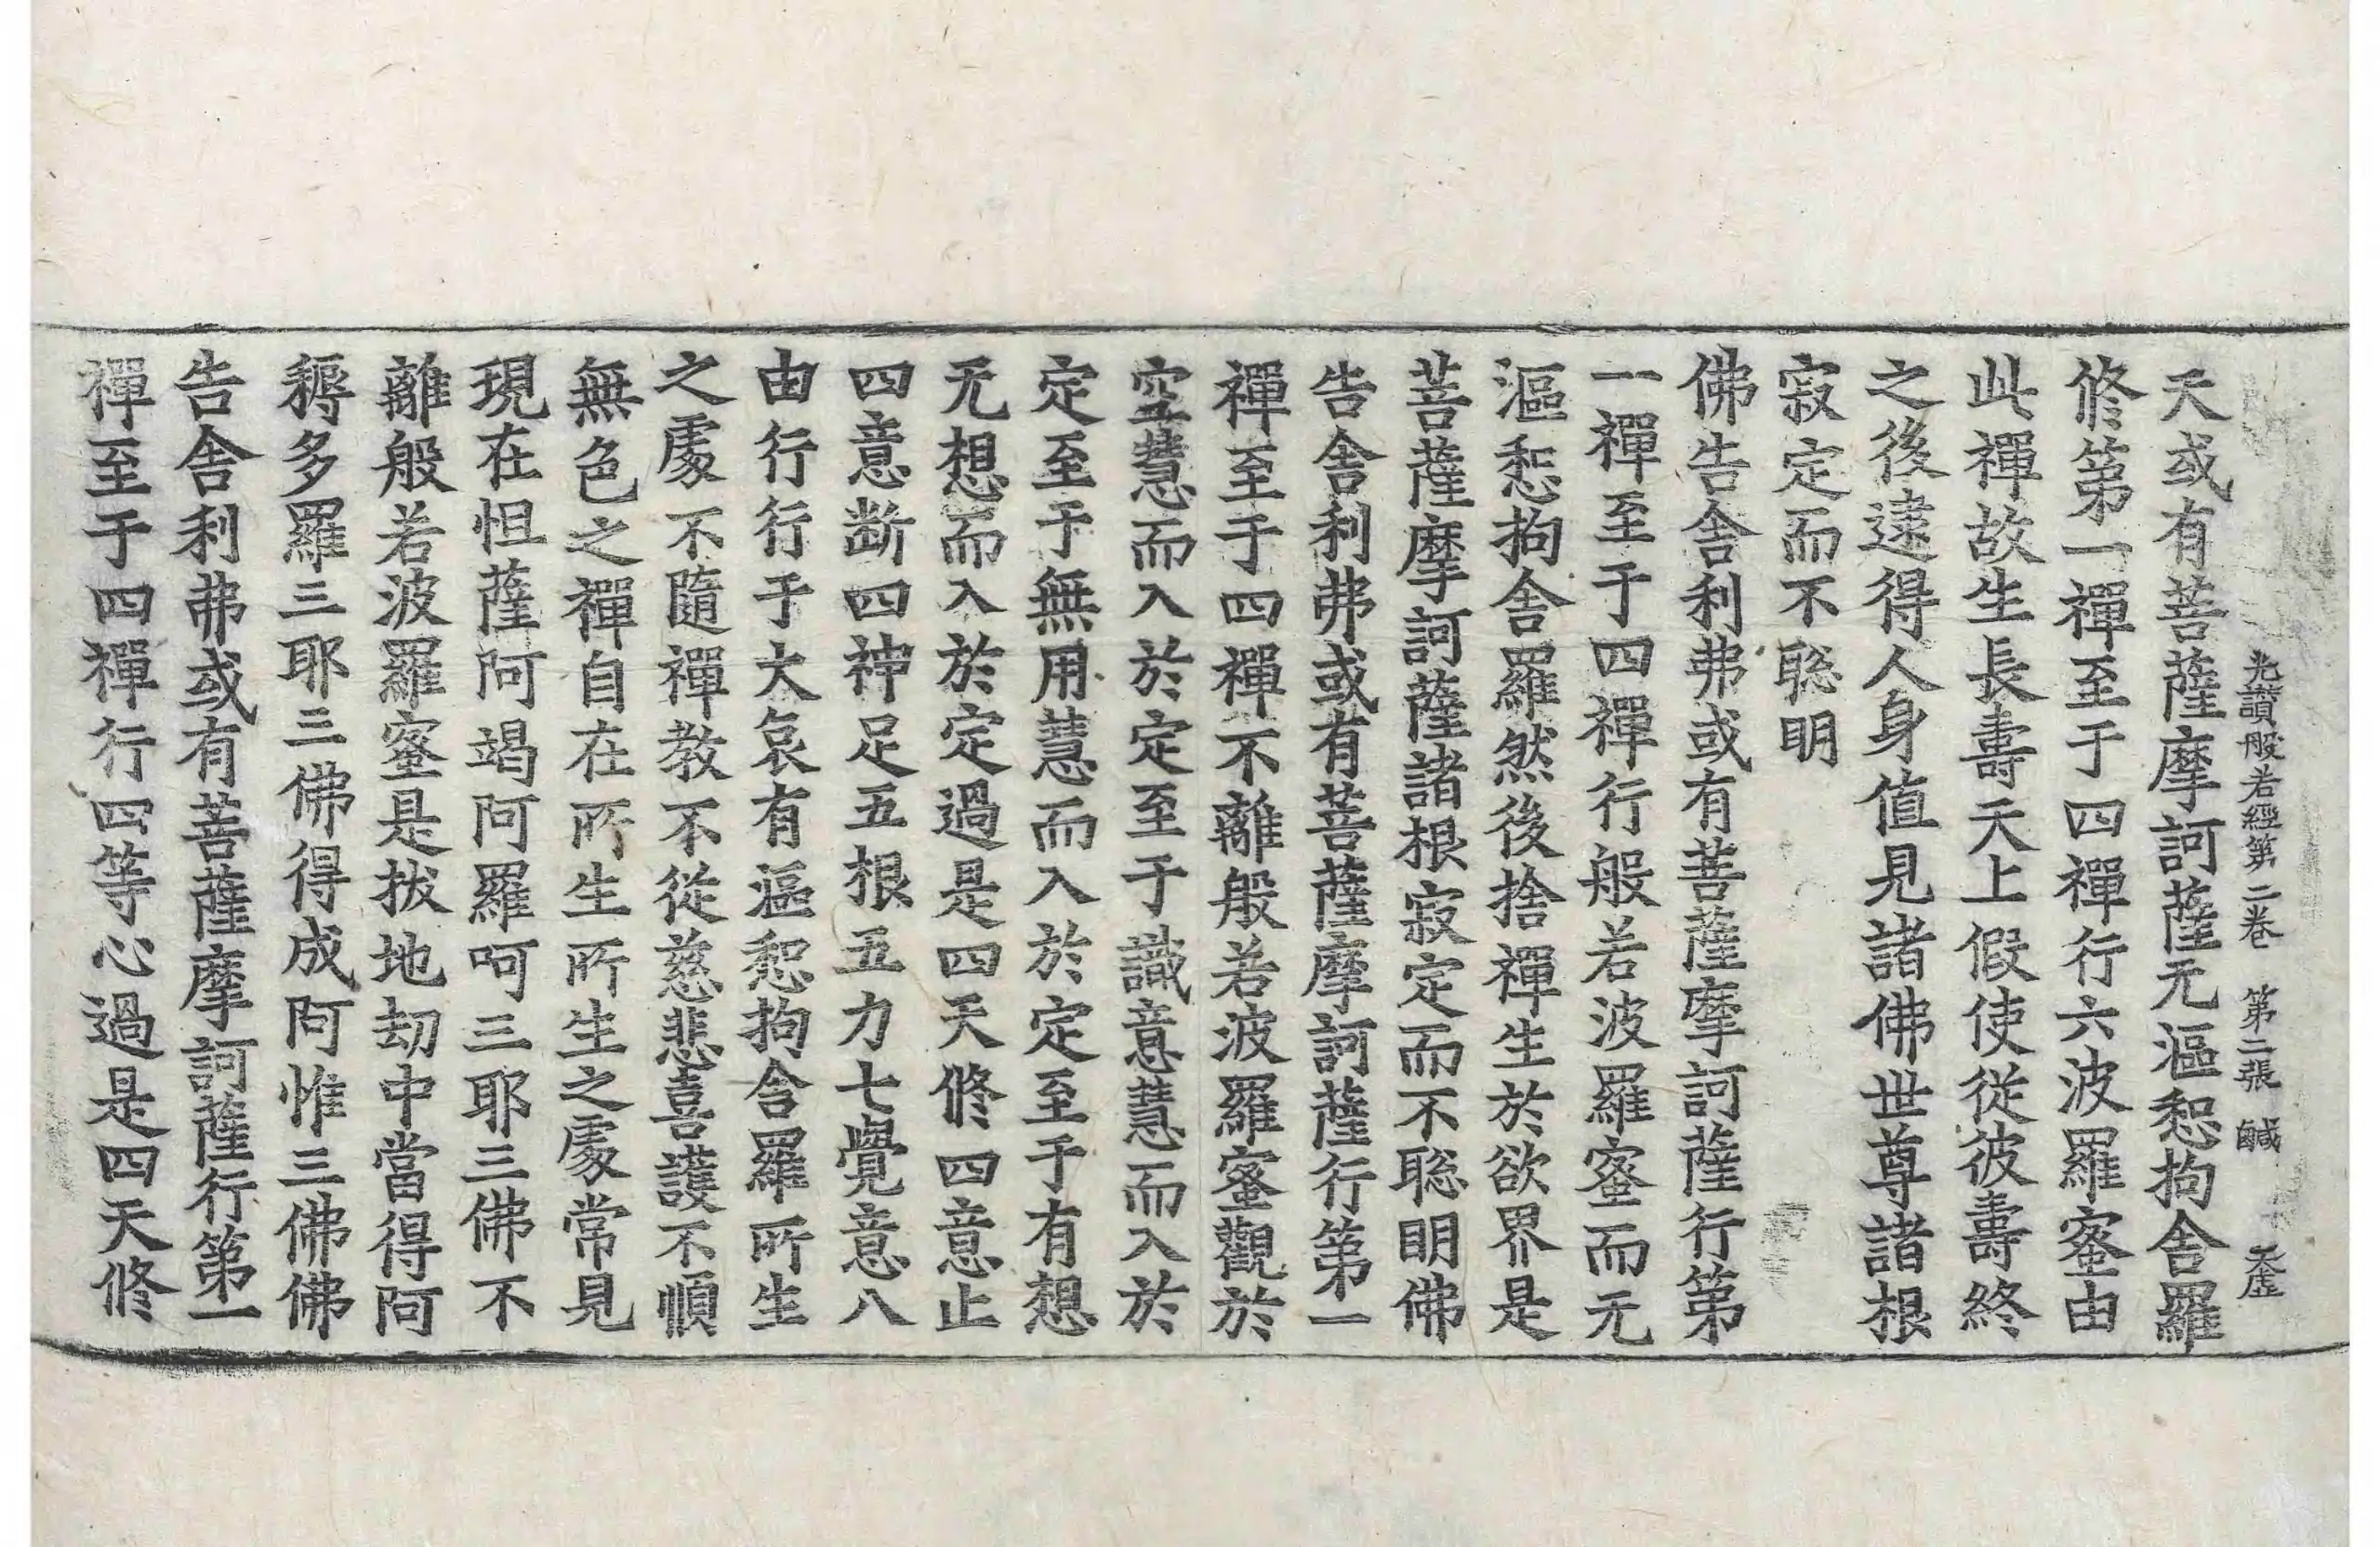 光讚般若經第二卷　第二張　鹹　天虛
天或有菩薩摩訶薩无漚惒拘舍羅
修第一禪至于四禪行六波羅蜜由
此禪故生長壽天上假使從彼壽終
之後逮得人身值見諸佛世尊諸根
寂定而不聡明
佛告舍利弗或有菩薩摩訶薩行第
一禪至于四禪行般若波羅蜜而无
漚惒拘舍羅然後捨禪生於欲界是
菩薩摩訶薩諸根寂定而不聡明佛
告舍利弗或有菩薩摩訶薩行第一
禪至于四禪不離般若波羅蜜觀於
空慧而入於定至于識意慧而入於
定至于無用慧而入於定至于有想
无想而入於定過是四天修四意止
四意斷四神足五根五力七覺意八
由行行于大哀有漚惒拘舍羅所生
之處不隨禪教不從慈悲喜護不順
無色之禪自在所生所生之處常見
現在怛薩阿竭阿羅呵三耶三佛不
離般若波羅蜜是拔地劫中當得阿
耨多羅三耶三佛得成阿惟三佛佛
告舍利弗或有菩薩摩訶薩行第一
禪至于四禪行四等心過是四天修